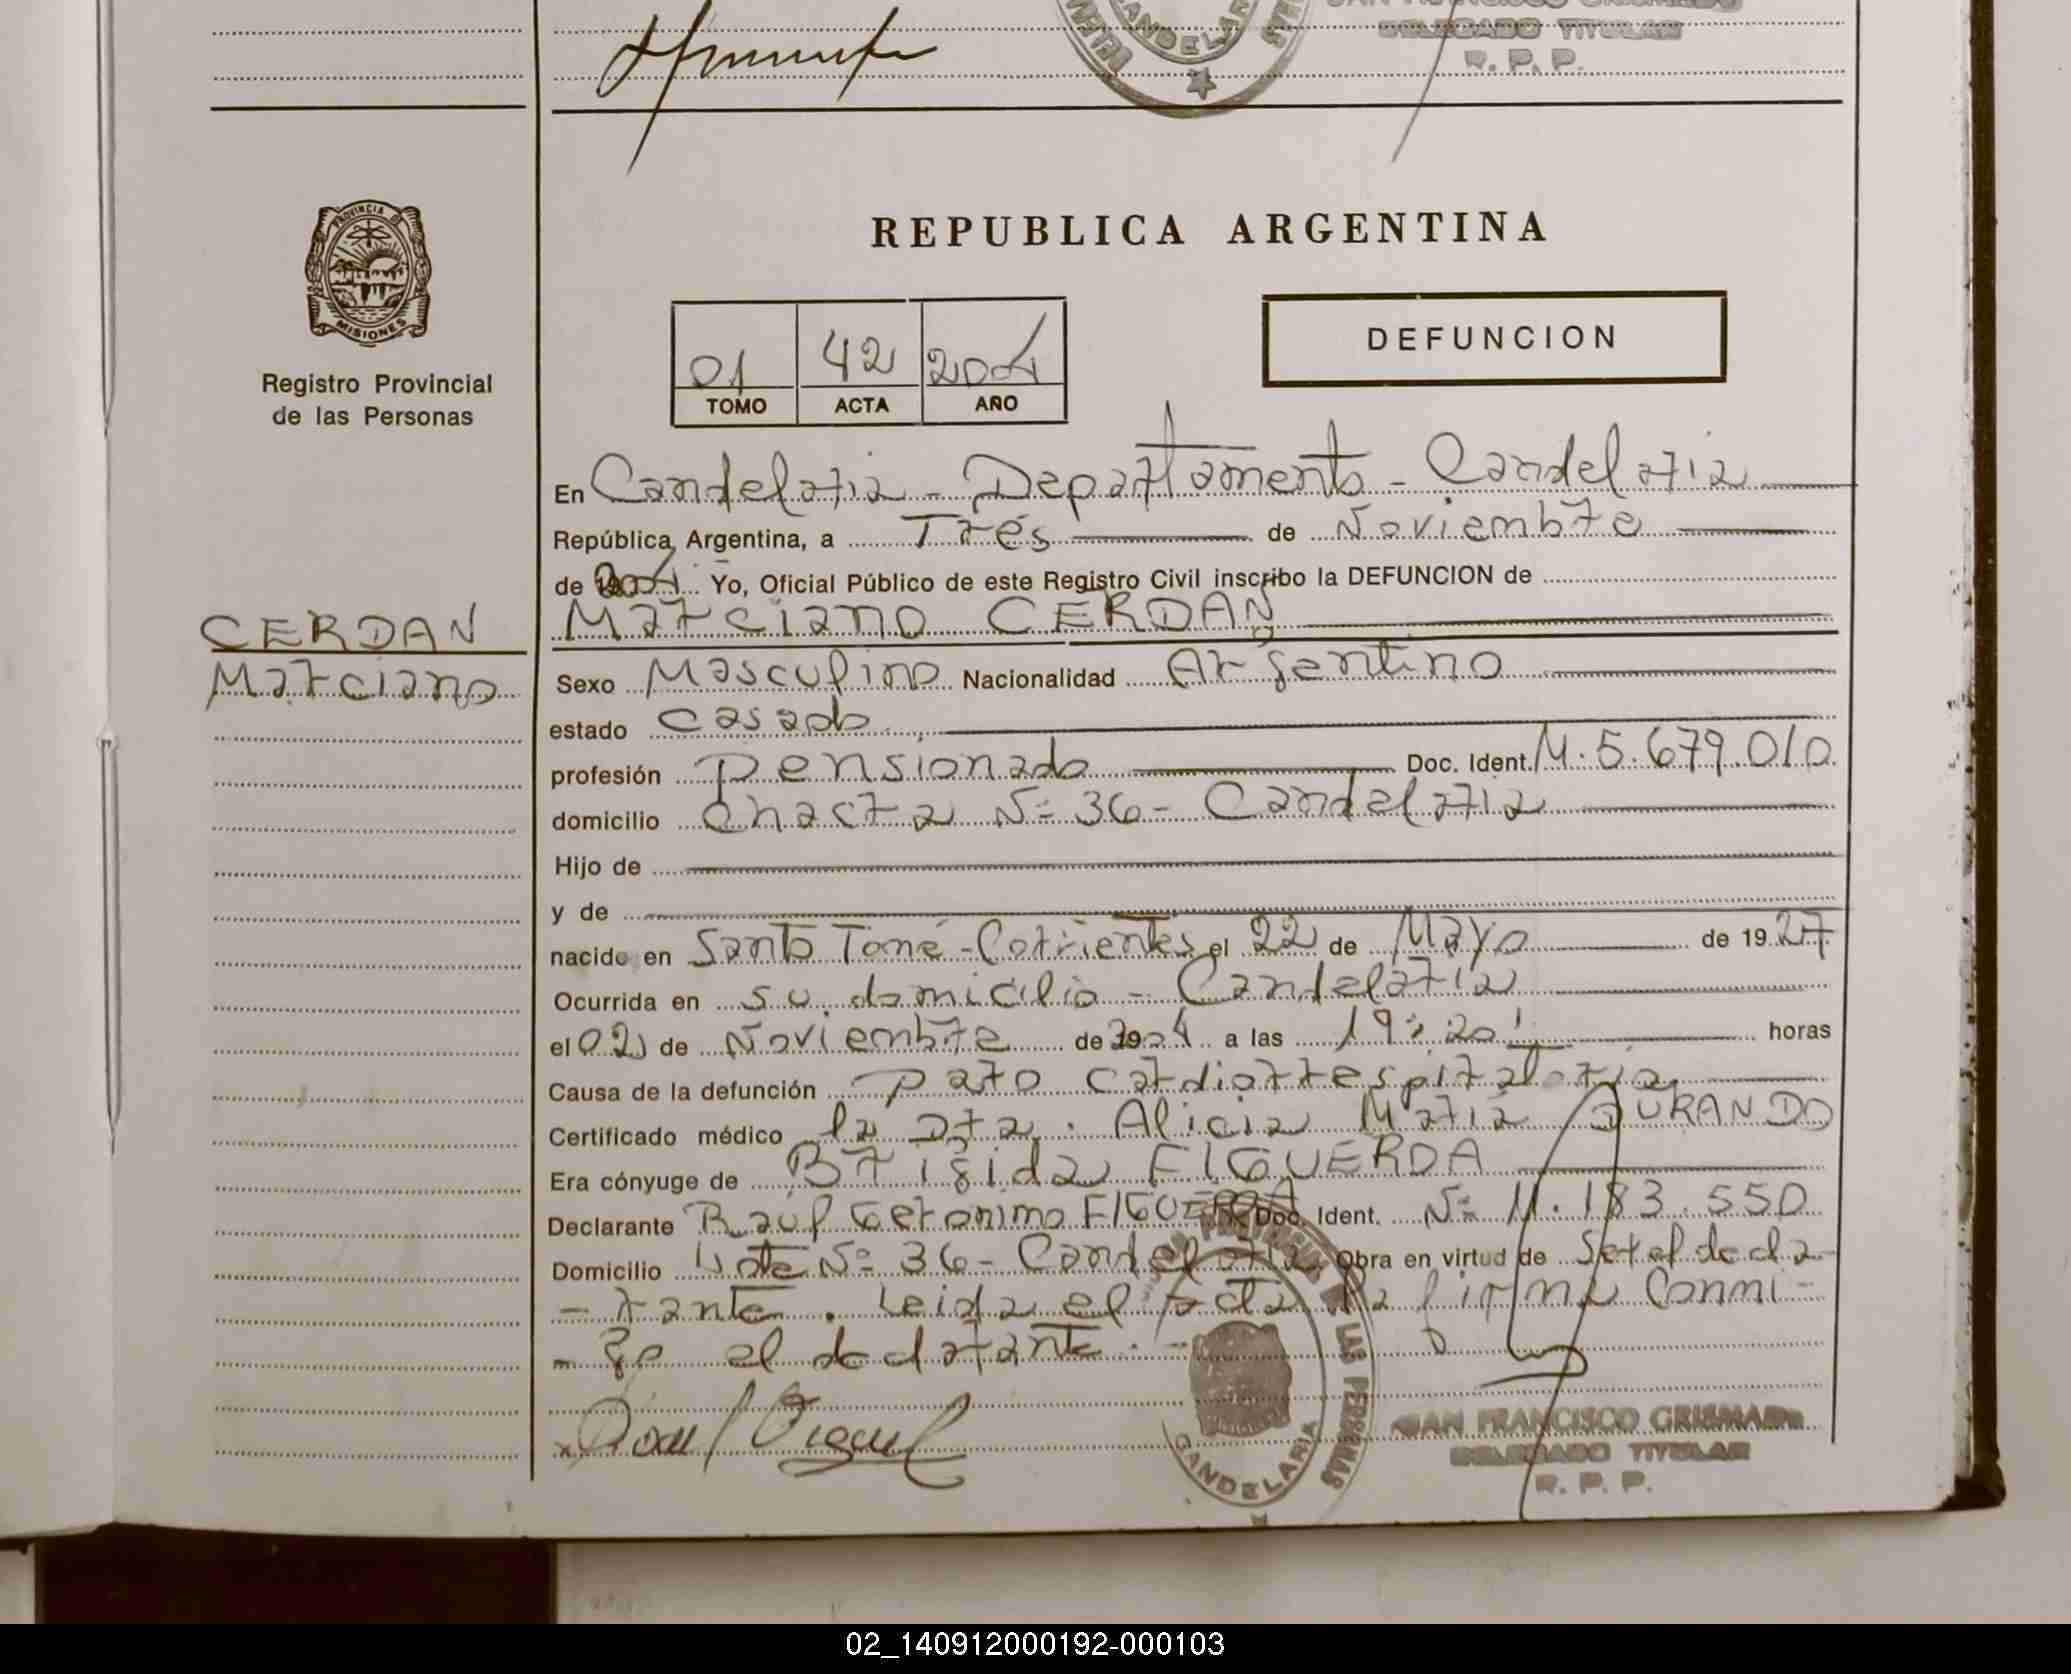 DELEGADO TITULAR
R. P. P.
CANDELARIA
PROVINCIA DE
MISIONES
Registro Provincial
de las Personas
REPUBLICA ARGENTINA
01 42 2004
TOMO ACTA AÑO
DEFUNCION
En Candelaria - Departamento - Candelaria
República Argentina, a Trés de Noviembre
de 2004. Yo, Oficial Público de este Registro Civil inscribo la DEFUNCION de
CERDAN
Marciano
Marciano CERDAN
Sexo Masculino Nacionalidad Argentino
estado casado
profesión pensionado Doc. Ident. M. 5.679.010
domicilio Chacra Nº 36 - Candelaria
Hijo de
y de
nacido en Santo Tomé - Corrientes el 22 de Mayo de 1927
Ocurrida en su domicilio - Candelaria
el 02 de Noviembre de 2004 a las 19:20' horas
Causa de la defunción paro cardiorrespiratorio
Certificado médico la Dra. Alicia María DURANDO
Era cónyuge de Brígida FIGUEROA
Declarante Raúl Gerónimo FIGUEROA Doc. Ident. Nº 11.183.550
Domicilio Lote Nº 36 - Candelaria Obra en virtud de Ser el decla-
- rante. Leida el acta la firma Conmi-
- go el declarante. -
REGISTRO PROVINCIAL DE LAS PERSONAS
CANDELARIA
JUAN FRANCISCO GRISMADO
DELEGADO TITULAR
R. P. P.
02_140912000192-000103